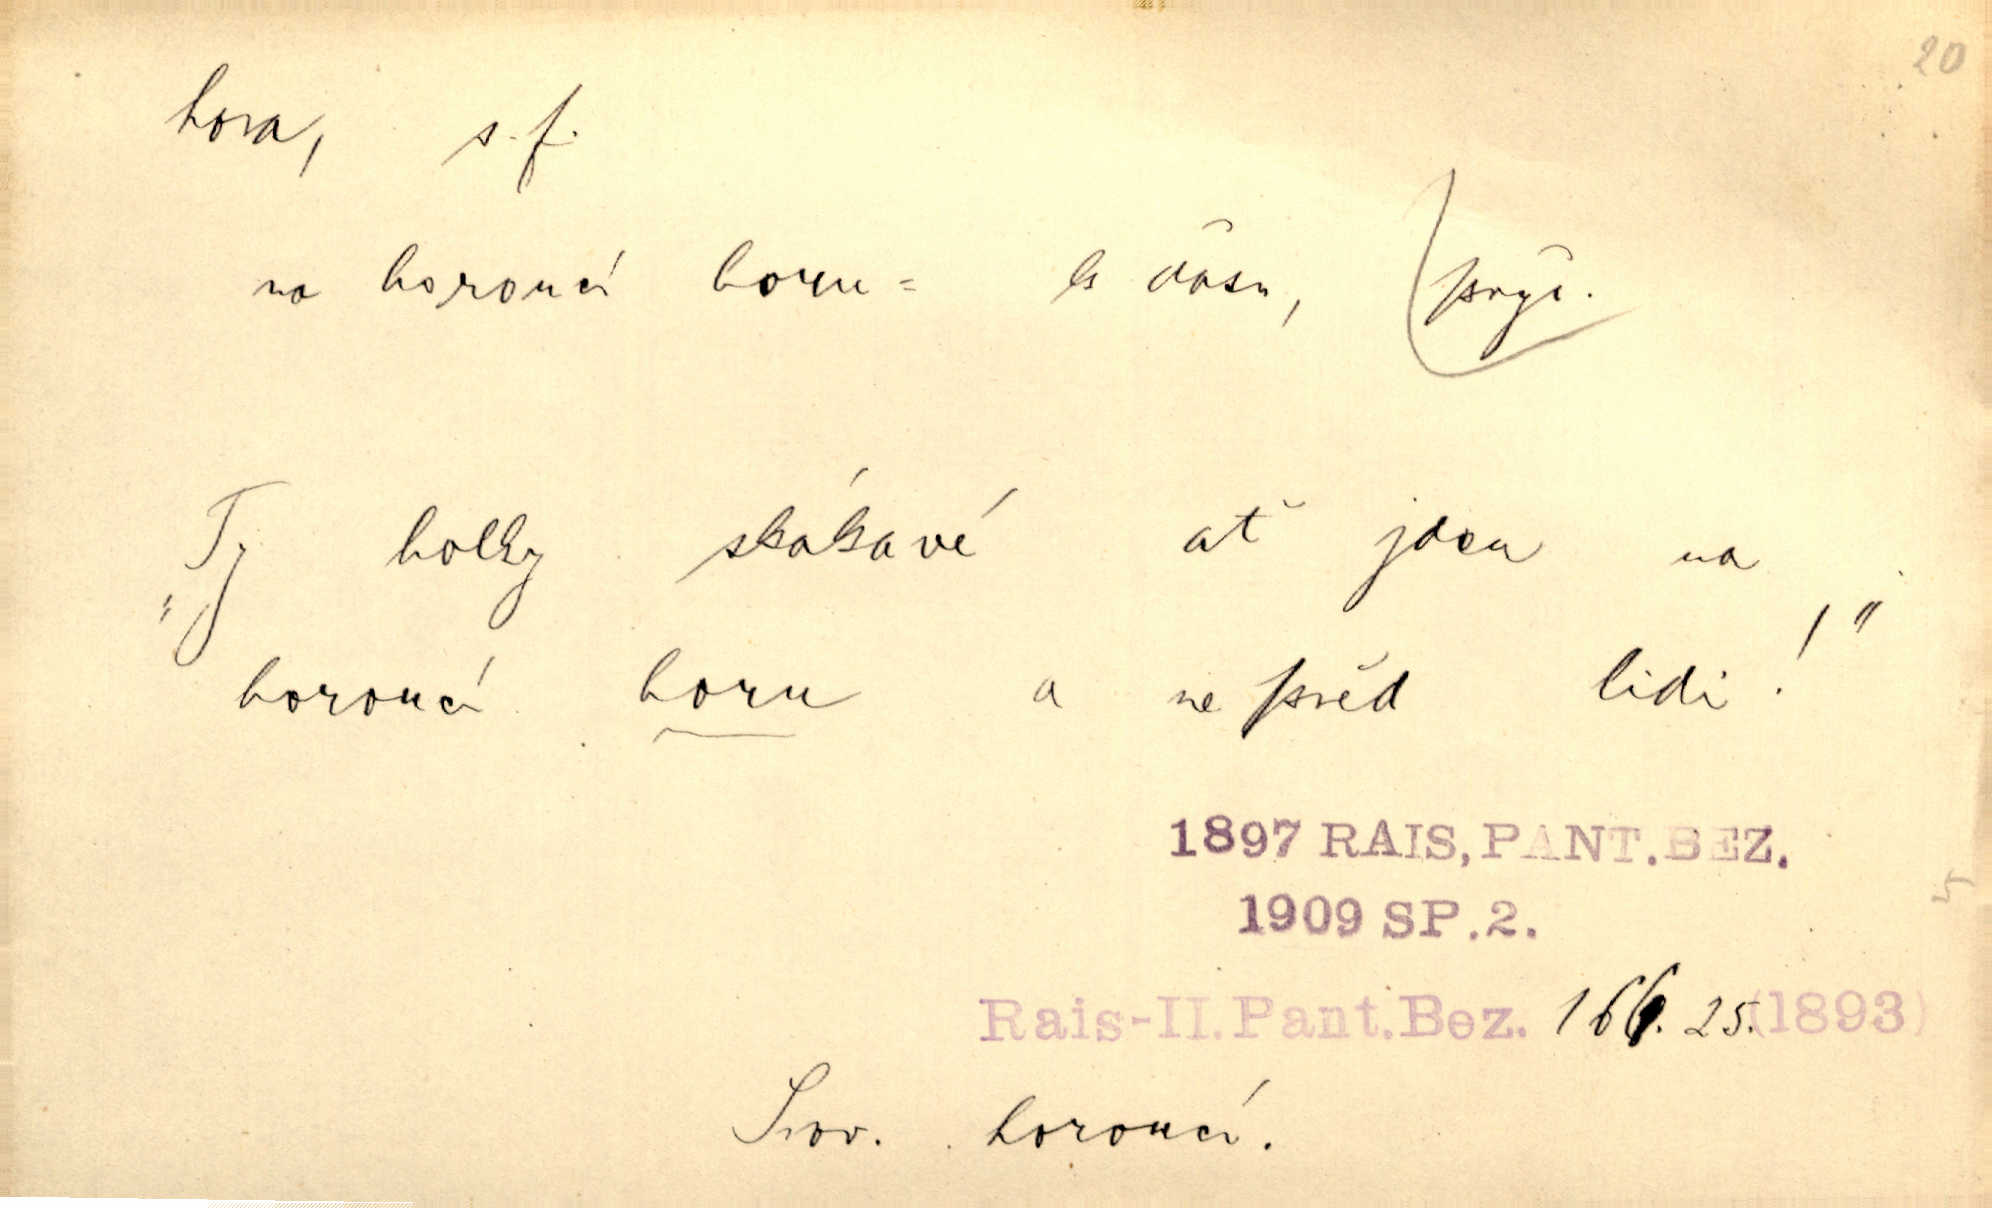 20
hora, s. f.
na horoucí horu = k ďasu, pryč.
„Ty holky skákavé ať jdou na
horoucí horu a ne před lidi!"
1897 RAIS, PANT. BEZ.
1909 SP. 2.
Rais-II. Pant. Bez. 166. 25. (1893)
Srov. horoucí.